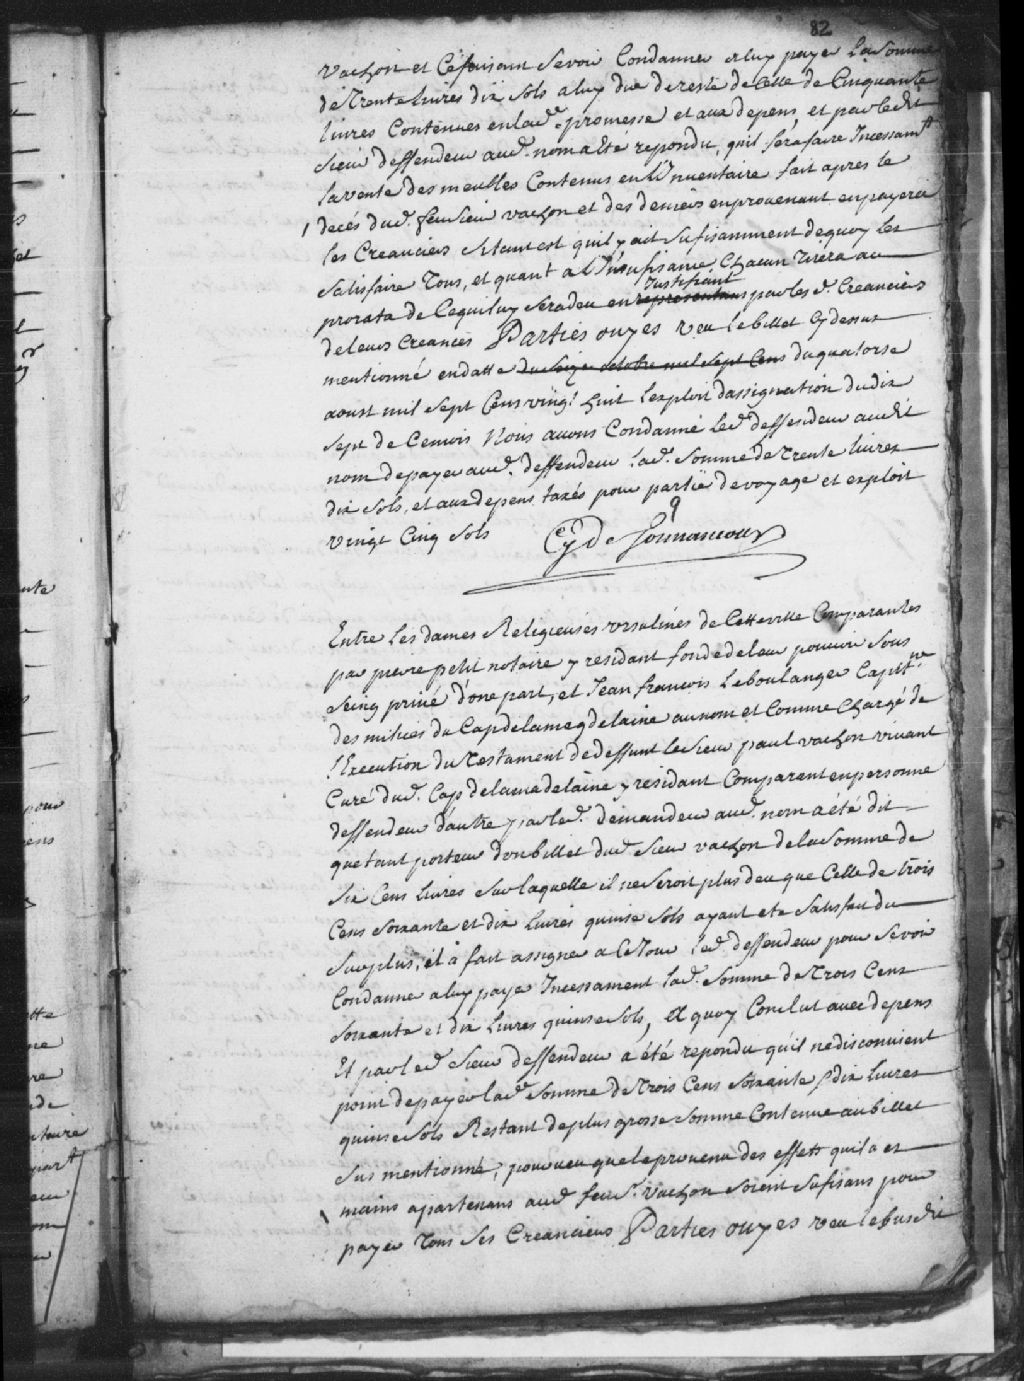 82
vachon et Cefaisant se voir Condanner a luy payer la somme
de Trente livres dix sols a luy due de reste de Celle de Cinquante
livres Contenues en lad. promesse et aux depens, et par ledit
sieur deffendeur aud. nom a eté repondu, quil fera faire Incessamt
la vente des meubles Contenus en l'Inventaire fait apres le
decés dud. feu sieur vachon et des deniers en provenant en payera
les Creanciers sitant est quil y ait sufisamment dequoy les
satisfaire Tous, et quant a l'Insufisance Chacun Tirera au
justifiant
prorata de Cequi luy sera deu en representans par les d. Creanciers
de leurs Creances Parties ouyes veu le billet Cy dessus
mentionné en datte du seize octobre mil sept Cens du quatorse
aoust mil sept Cens vingt huit l'exploit dassignation du dix
sept de Cemois Nous avons Condanné led. deffendeur audit
nom de payer aud. deffendeur lad. somme de Trente livres
dix sols, et aux depens taxés pour partie de voyage et exploit
vingt Cinq sols
Cg De Tonnancour
Entre les dames Religieuses ursulines de Cette ville Comparantes
par pierre petit notaire y residant fondé de leur pouvoir sous
seing privé d'une part, et Jean francois Leboulanger Capitne
des milices du Cap de lamagdelaine au nom et Comme Chargé de
l'Execution du Testament de deffunt le sieur paul vachon vivant
Curé dud. Cap de lamadelaine y residant Comparant en personne
deffendeur dautre par led. demandeur aud. nom a été dit
que tant porteur d'un billet dud. sieur vachon de la somme de
six Cens livres sur laquelle il ne seroit plus deu que Celle de trois
Cens soixante et dix livres quinse sols ayant eté satisfait du
surplus, il a fait assigner a Ce Jour led. deffendeur pour se voir
Condanner a luy payer Incessament lad. somme de Trois Cens
soixante et dix livres quinse sols, A quoy Conclut avec depens
Et par led. sieur deffendeur a été repondu quil ne disconvient
point de payer lad. somme de Trois Cens soixante & dix livres
quinse sols Restant de plus grosse somme Contenue au billet
sus mentionné, pourveu que le provenu des effets quil a es
mains apartenans aud. feu sr. vachon soient sufisans pour
payer Tous ses Creanciers Parties ouyes veu le susdit